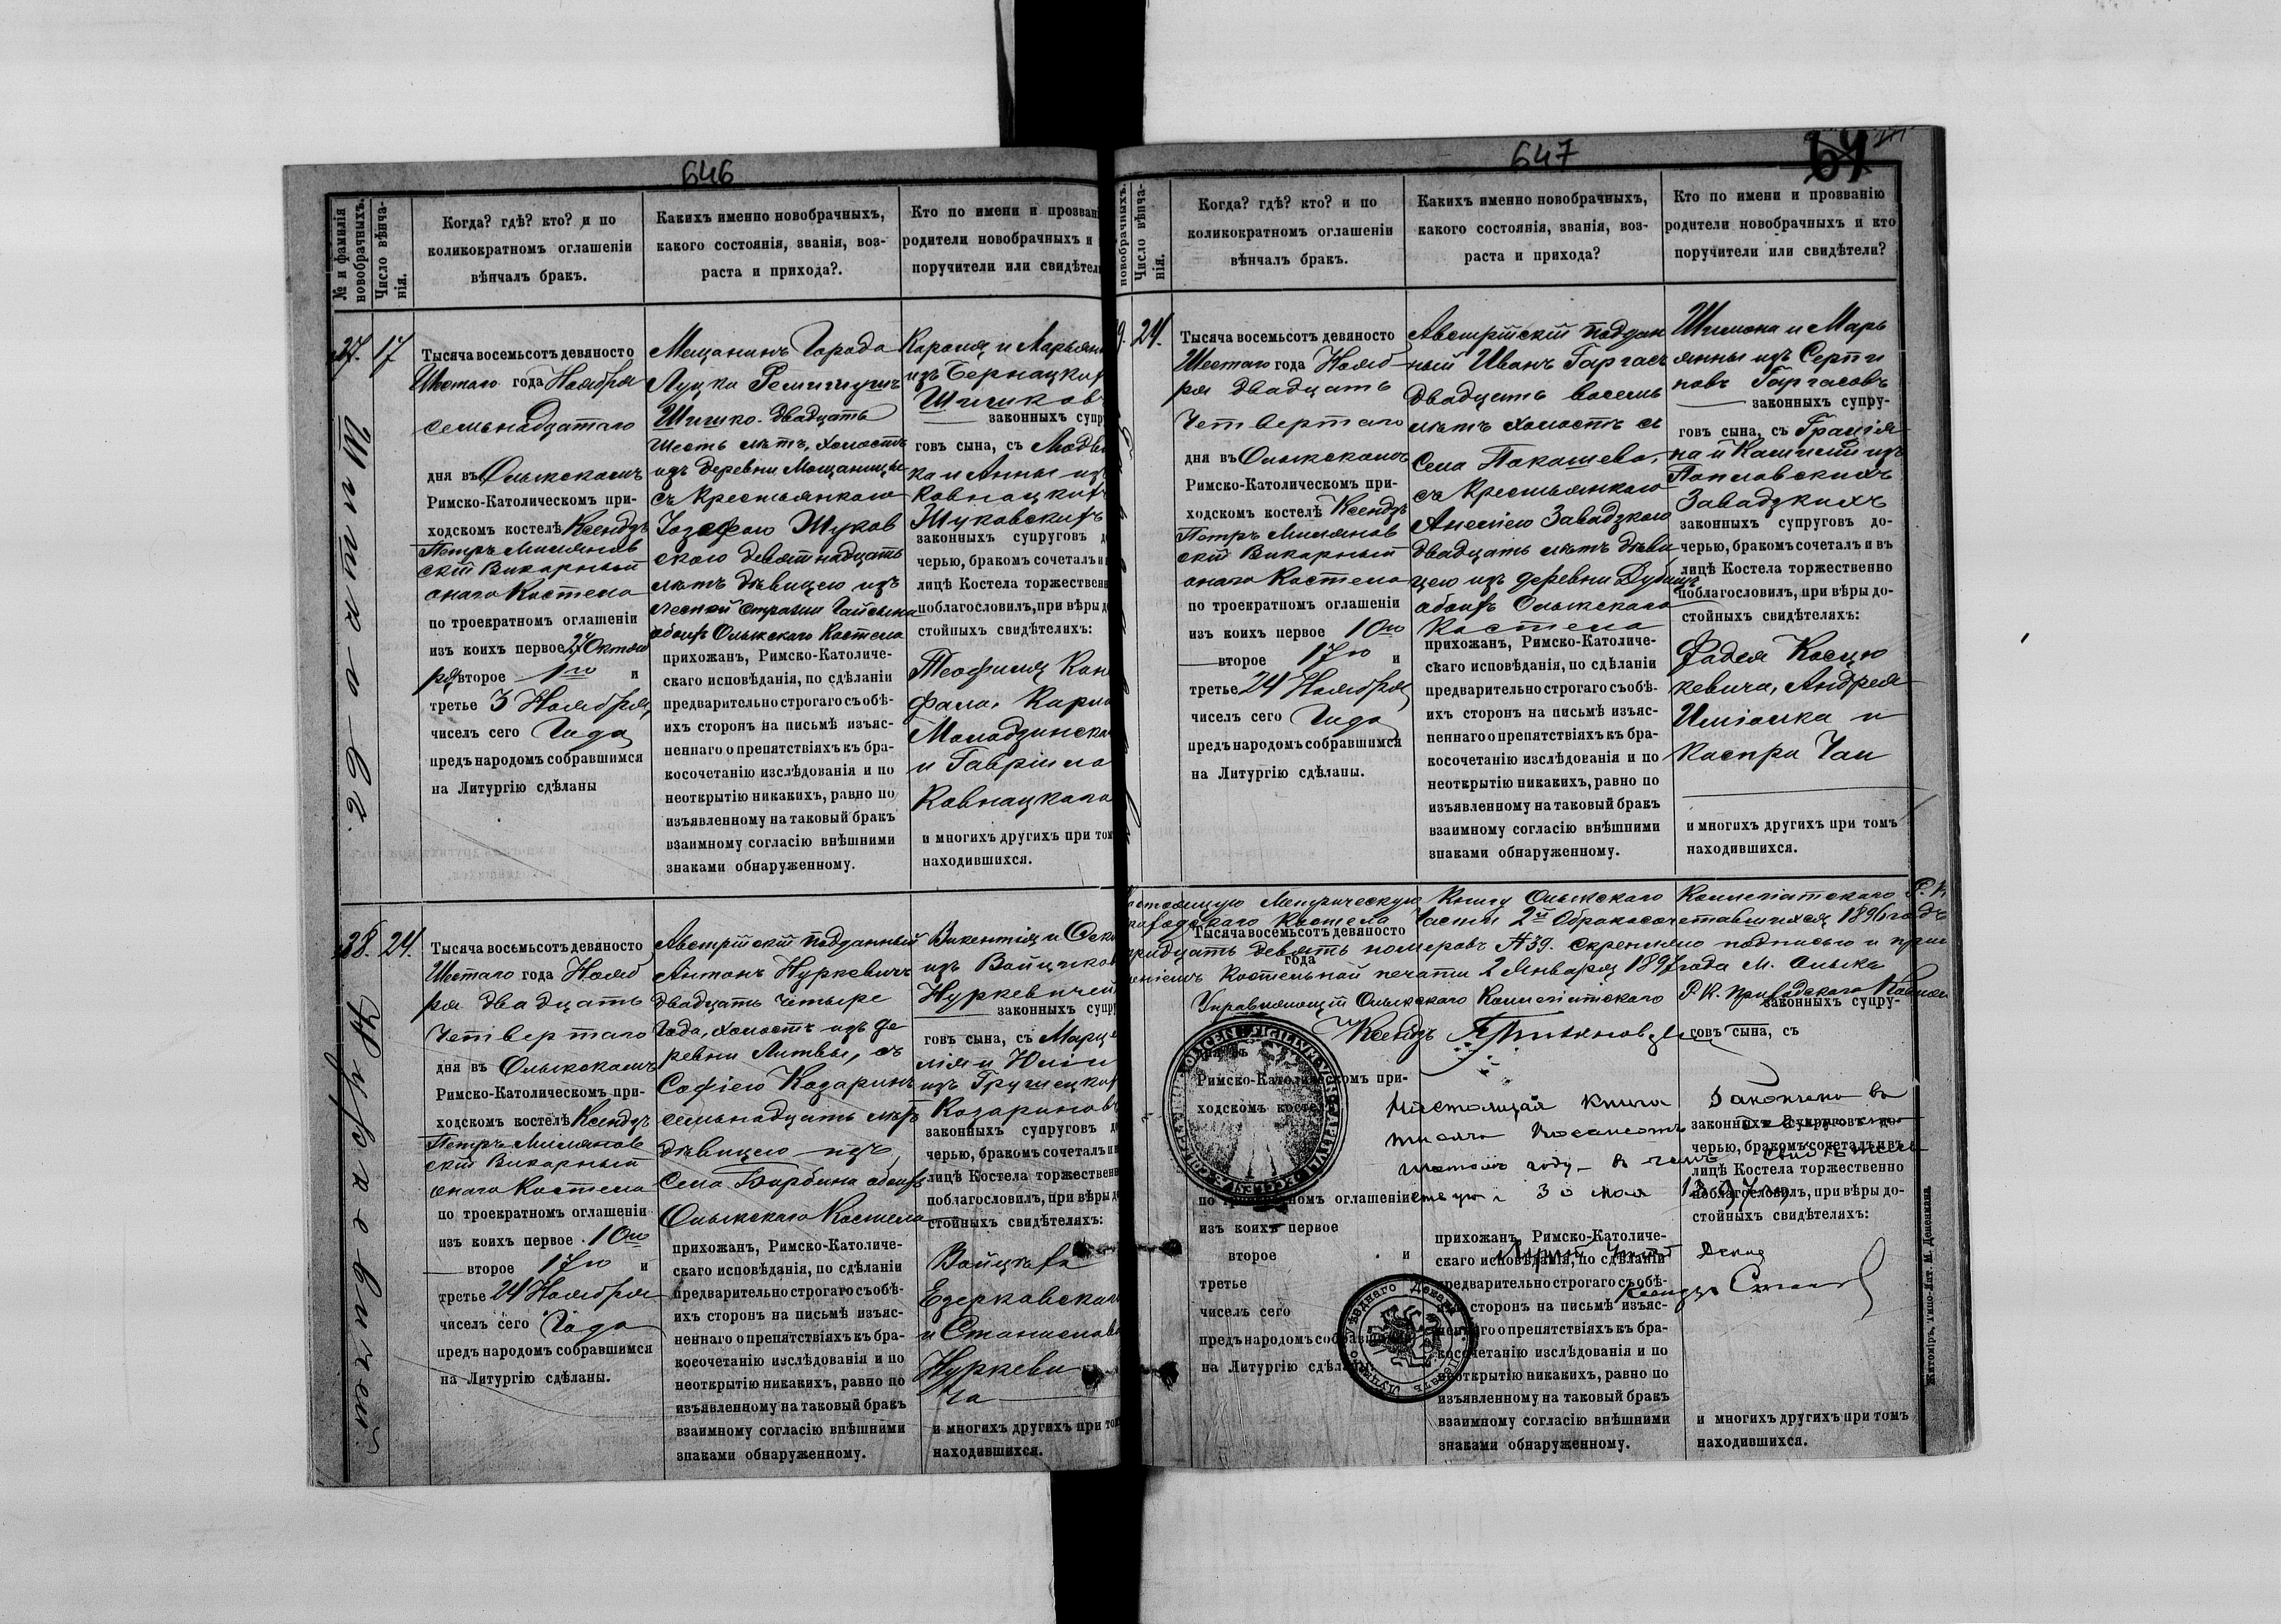 646
№ и фамилія новобрачныхъ.
Число вѣнча-
нія.
Когда? гдѣ? кто? и по
коликократномъ оглашеніи
вѣнчалъ бракъ.
Какихъ именно новобрачныхъ,
какого состоянія, званія, воз-
раста и прихода?.
Кто по имени и прозван
родители новобрачныхъ и
поручители или свидѣтел
37. 17
Тысяча восемьсотъ девяносто
Шестаго года Ноября
семьнадцатаго
дня въ Олыкскомъ
Римско-Католическомъ при-
ходскомъ костелѣ Ксендзъ
Петръ
скій Викарный
онаго Костела
по троекратномъ оглашеніи
изъ коихъ первое 27 Октяб
ря второе 1го и
третье 3 Ноября
чиселъ сего Года
предъ народомъ собравшимся
на Литургію сдѣланы
Мещанинъ Города
Луцка
Шишко двадцать
шесть лѣтъ, холостъ
изъ деревни Мощаницы
съ Крестьянкою
Іозефою Жуков
скою девятнадцать
лѣтъ дѣвицею изъ
обоихъ Олыкскаго Костела
прихожанъ, Римско-Католиче-
скаго исповѣданія, по сдѣланіи
предварительно строгаго съ обѣ-
ихъ сторонъ на письмѣ изъяс-
неннаго о препятствіяхъ къ бра-
косочетанію изслѣдованія и по
неоткрытію никакихъ, равно по
изъявленному на таковый бракъ
взаимному согласію внѣшними
знаками обнаруженному.
Кароля и Марьян
изъ Бернацких
Шишков
законныхъ супру
говъ сына, съ Людви
ка и Анны из
Ковнацких
Жуковскихъ
законныхъ супруговъ д
черью, бракомъ сочеталъ и
лицѣ Костела торжествен
поблагословилъ, при вѣры д
стойныхъ свидѣтеляхъ:
Теофиля
фала, Карла
и Гавріила
Ковнацкаго
и многихъ другихъ при том
находившихся.
38. 24.
Тысяча восемьсотъ девяносто
Шестаго года Нояб
ря двадцать
Четвертаго
дня въ Олыкскомъ
Римско-Католическомъ при-
ходскомъ костелѣ Ксендзъ
Петръ
скій Викарный
онаго Костела
по троекратномъ оглашеніи
изъ коихъ первое 10го
второе 17го и
третье 24 Ноября
чиселъ сего Года
предъ народомъ собравшимся
на Литургію сдѣланы.
Австрійскій подданный
Антонъ Нуркевичъ
двадцать четыре
Года, холостъ изъ де
ревни Литвы, съ
Софіею Козаринъ
семьнадцать лѣтъ
дѣвицею изъ
Села обоихъ
Олыкскаго Костела
прихожанъ, Римско-Католиче-
скаго исповѣданія, по сдѣланіи
предварительно строгаго съ обѣ-
ихъ сторонъ на письмѣ изъяс-
неннаго о препятствіяхъ къ бра-
косочетанію изслѣдованія и по
неоткрытію никакихъ, равно по
изъявленному на таковый бракъ
взаимному согласію внѣшними
знаками обнаруженному.
Викентія и
изъ
Нуркевичей
законныхъ супру
говъ сына, съ Марце
лія и Юліи
изъ Грушецких
Козаринов
законныхъ супруговъ д
черью, бракомъ сочеталъ и
лицѣ Костела торжествен
поблагословилъ, при вѣры д
стойныхъ свидѣтеляхъ:
Войцѣха
Езерковскаго
и Станислава
Нуркеви
ча
и многихъ другихъ при том
находившихся.
647
новобрачныхъ.
Число вѣнча-
нія.
Когда? гдѣ? кто? и по
коликократномъ оглашеніи
вѣнчалъ бракъ.
Какихъ именно новобрачныхъ,
какого состоянія, званія, воз-
раста и прихода?
Кто по имени и прозванію
родители новобрачныхъ и кто
поручители или свидѣтели?
9. 24.
Тысяча восемьсотъ девяносто
Шестаго года Нояб
ря двадцать
Четвертаго
дня въ Олыкскомъ
Римско-Католическомъ при-
ходскомъ костелѣ Ксендзъ
Петръ
скій Викарный
онаго Костела
по троекратномъ оглашеніи
изъ коихъ первое 10го
второе 17го и
третье 24 Ноября
чиселъ сего Года
предъ народомъ собравшимся
на Литургію сдѣланы.
Австрійскій поддан
ный Иванъ Гаргасъ
двадцать восемь
лѣтъ холостъ съ
Села Покашева,
съ Крестьянкою
Анеліею Завадзкою
двадцать лѣтъ дѣви
цею изъ деревни Дубищъ
обоихъ Олыкскаго
Костела
прихожанъ, Римско-Католиче-
скаго исповѣданія, по сдѣланіи
предварительно строгаго съ обѣ-
ихъ сторонъ на письмѣ изъяс-
неннаго о препятствіяхъ къ бра-
косочетанію изслѣдованія и по
неоткрытію никакихъ, равно по
изъявленному на таковый бракъ
взаимному согласію внѣшними
знаками обнаруженному.
Шимона и Марь
янны изъ
Гаргасовъ
законныхъ супру-
говъ сына, съ
изъ
Поплавскихъ
Завадзкихъ
законныхъ супруговъ до-
черью, бракомъ сочеталъ и въ
лицѣ Костела торжественно
поблагословилъ, при вѣры до-
стойныхъ свидѣтеляхъ:
Фадея Косцю
кевича, Андрея
и
Каспра
и многихъ другихъ при томъ
находившихся.
Метрическую Книгу Олыкскаго Коллегіатскаго Р. К.
Костела Части 2й О бракосочетавшихся 1896 годъ
тридцать девять номеровъ №39. скрепляю подписью и
Костельной печати 2 Января 1897 года М. Олыка
Управляющій Олыкскаго Коллегіатскаго Р. К. Приходскаго
Ксендзъ
Тысяча восемьсотъ девяносто
года
дня въ
Римско-Католическомъ при-
ходскомъ костелѣ
по троекратномъ оглашеніи
изъ коихъ первое
второе и
третье
чиселъ сего
предъ народомъ собравшимся
на Литургію сдѣланы.
Настоящая книга
30 мая 1897
прихожанъ, Римско-Католиче-
скаго исповѣданія, по сдѣланіи
предварительно строгаго съ обѣ-
ихъ сторонъ на письмѣ изъяс-
неннаго о препятствіяхъ къ бра-
косочетанію изслѣдованія и по
неоткрытію никакихъ, равно по
изъявленному на таковый бракъ
взаимному согласію внѣшними
знаками обнаруженному.
законныхъ супру-
говъ сына, съ
законныхъ супруговъ до-
черью, бракомъ сочеталъ и въ
лицѣ Костела торжественно
поблагословилъ, при вѣры до-
стойныхъ свидѣтеляхъ:
Ксендзъ
и многихъ другихъ при томъ
находившихся.
Житоміръ, Типо-Лит. М. Дененмана